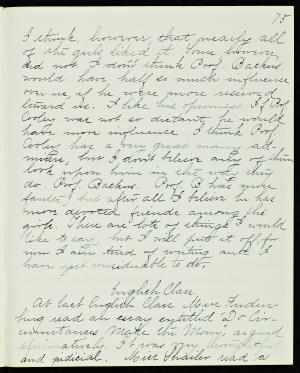 75
I think, however, that nearly all
of the girls liked it. Some however,
did not. I don't think Prof. Backus
would have half so much influence
over us, if he were more reserved
toward us. I like his openness. If Prof.
Cooley was not so distant, he would
have more influence. I think Prof.
Cooley has a very great many ad-
mirers, but I don't believe any of them
look upon him in the way they
do Prof. Backus. Prof. B. has more
faults, but after all I believe he has
more devoted friends among the
girls. There are lots of things I would
like to say, but I will put it off for
now I am tired of writing and I
have yet considerable to do.
English Class.
At last English Class Miss
read an essay entitled "Do Cir-
cumstances Make the Man," argued
affirmatively. It was very
and judicial. Miss read a